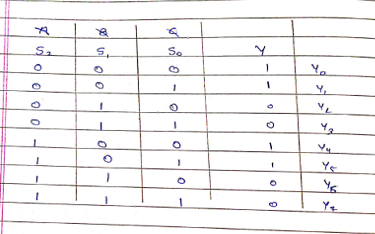 A B C
S₂ S₁ S₀ Y
0 0 0 1 Y₀
0 0 1 1 Y₁
0 1 0 0 Y₂
0 1 1 0 Y₃
1 0 0 1 Y₄
1 0 1 1 Y₅
1 1 0 0 Y₆
1 1 1 0 Y₇